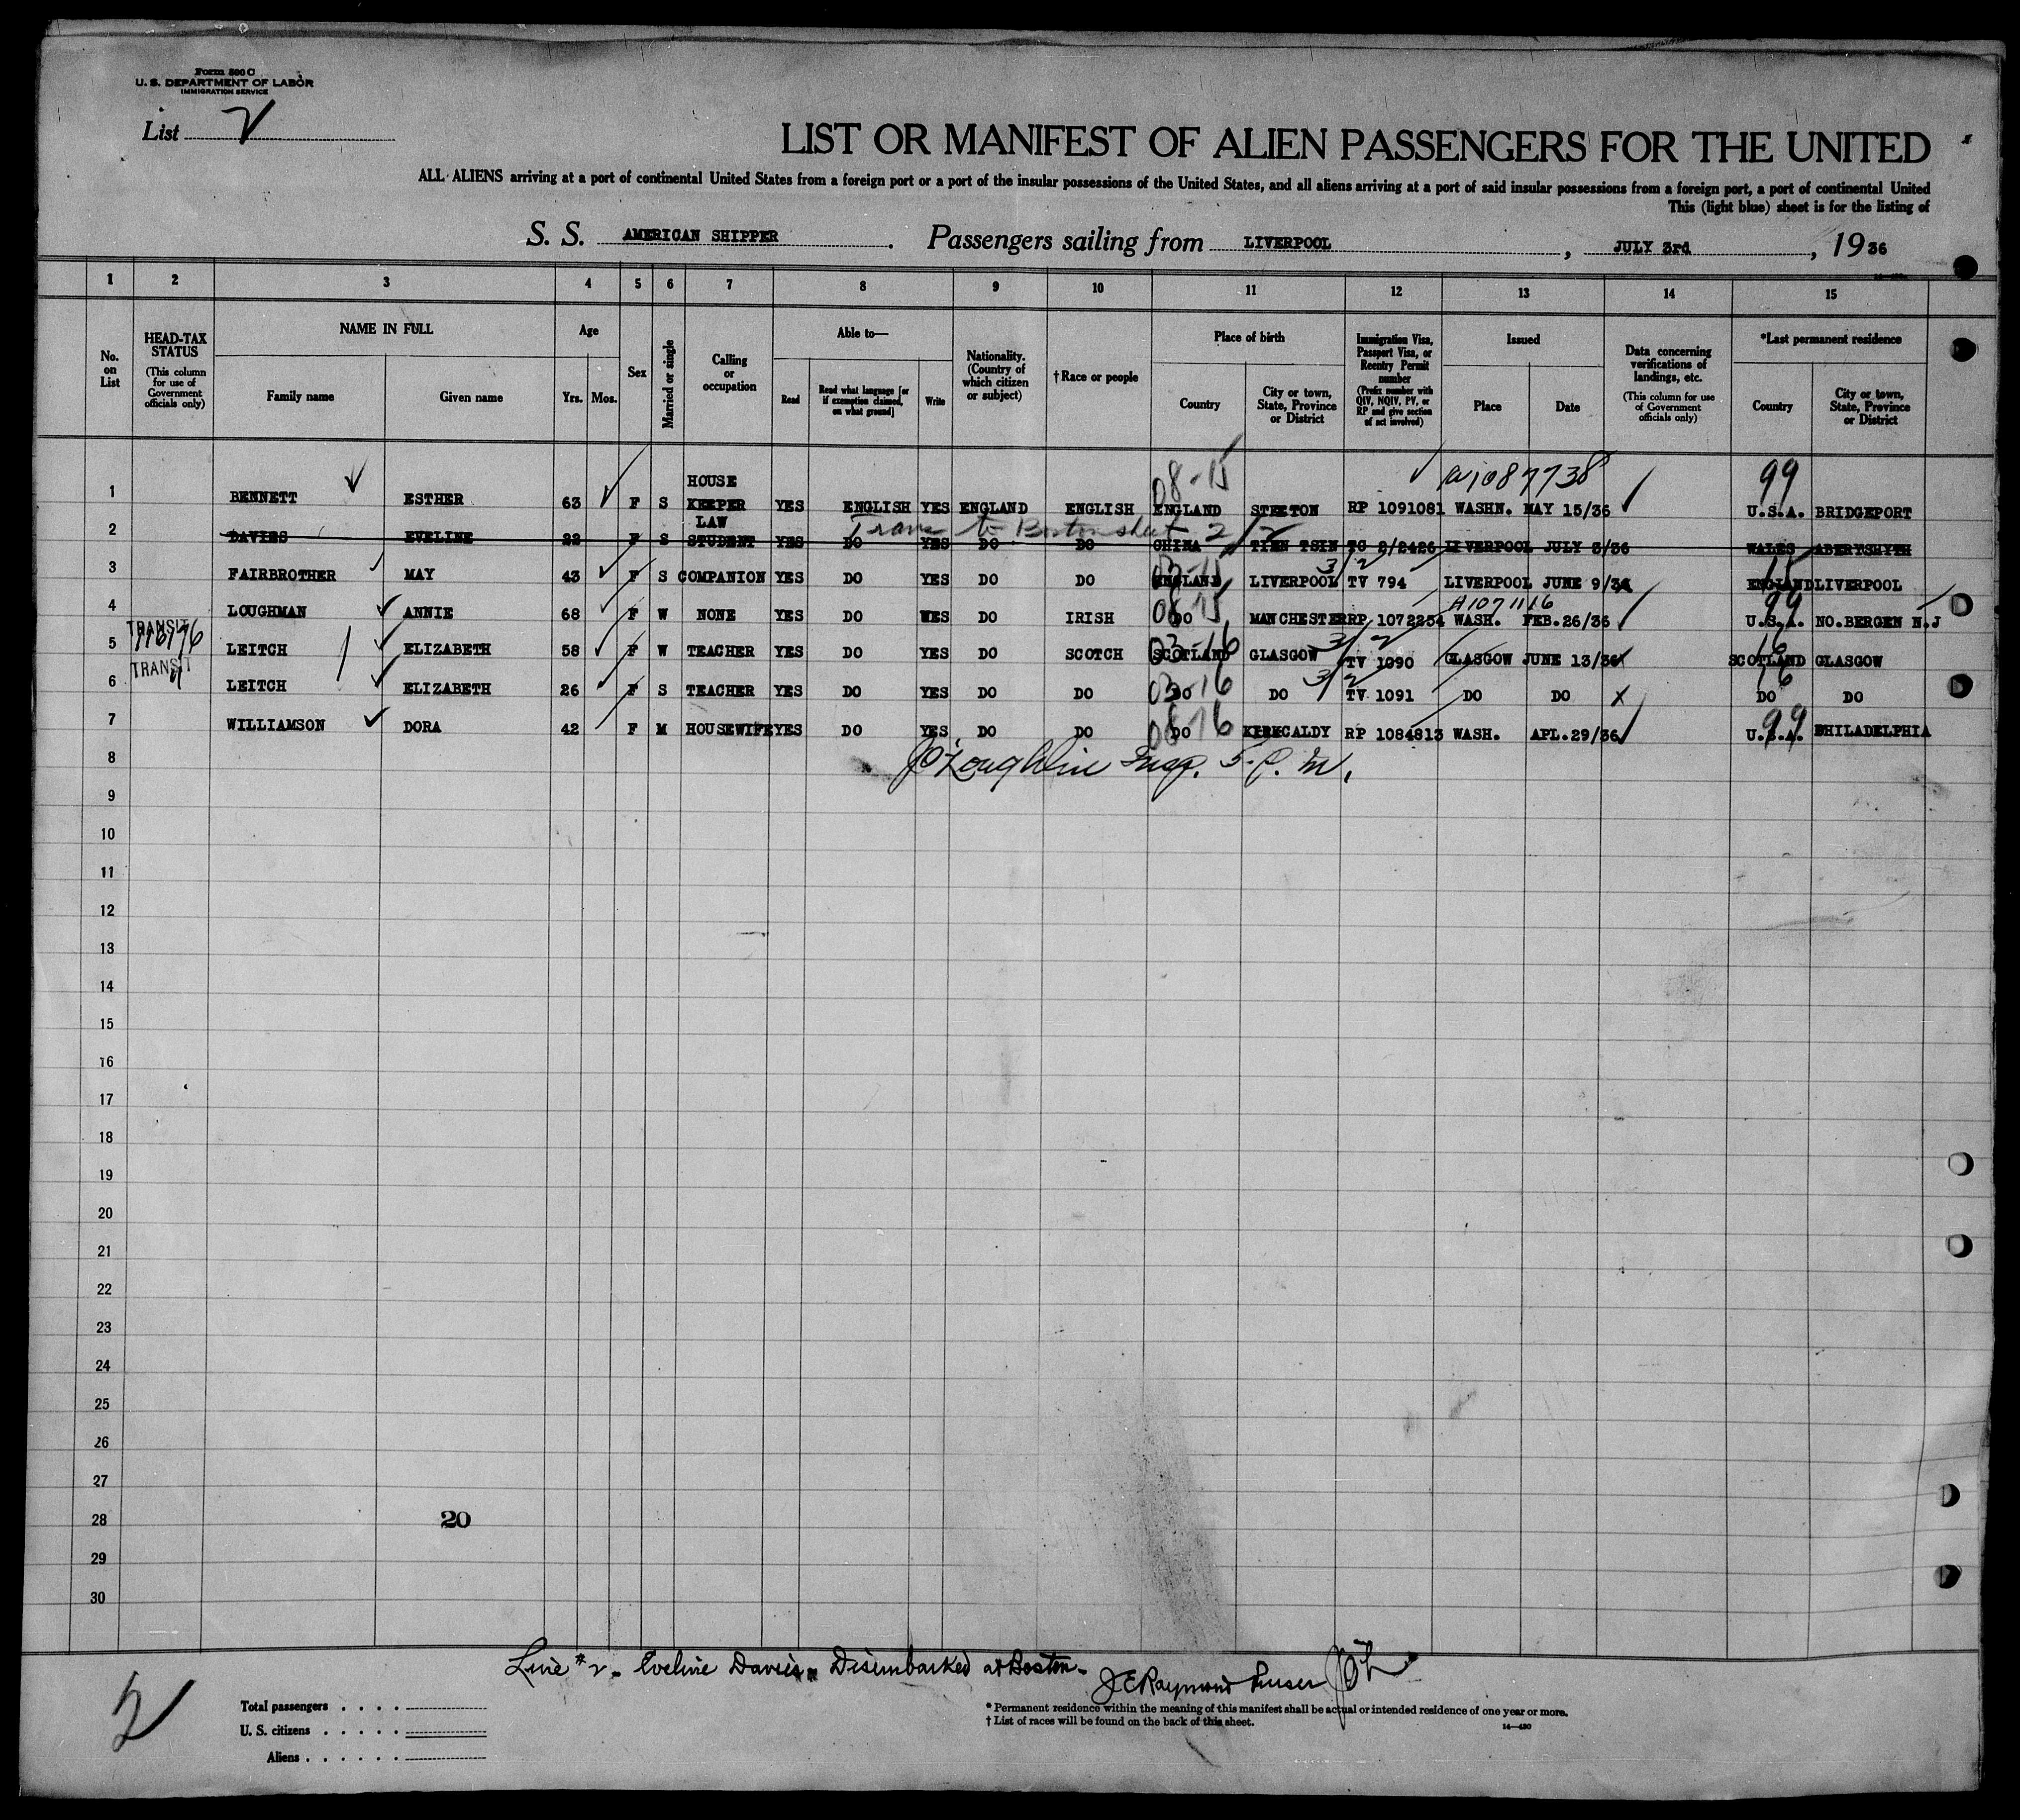 Form 500 C
U. S. DEPARTMENT OF LABOR
IMMIGRATION SERVICE
List 2
LIST OR MANIFEST OF ALIEN PASSENGERS FOR THE UNITED
ALL ALIENS arriving at a port of continental United States from a foreign port or a port of the insular possessions of the United States, and all aliens arriving at a port of said insular possessions from a foreign port, a port of continental United
This (light blue) sheet is for the listing of
S. S. AMERICAN SHIPPER . Passengers sailing from LIVERPOOL , JULY 3rd , 19 36
1 2 3 4 5 6 7 8 9 10 11 12 13 14 15
No. on List
HEAD-TAX STATUS (This column for use of Government officials only)
NAME IN FULL
Family name Given name
Age
Yrs. Mos.
Sex
Married or single
Calling or occupation
Able to—
Read Read what language [or if exemption claimed, on what ground] Write
Nationality. (Country of which citizen or subject)
† Race or people
Place of birth
Country City or town, State, Province or District
Immigration Visa, Passport Visa, or Reentry Permit number (Prefix number with QIV, NQIV, PV, or RP and give section of act involved)
Issued
Place Date
Data concerning verifications of landings, etc. (This column for use of Government officials only)
*Last permanent residence
Country City or town, State, Province or District
08-15 A1087738 99
1 BENNETT ESTHER 63 F S HOUSE KEEPER YES ENGLISH YES ENGLAND ENGLISH ENGLAND STEETON RP 1091081 WASHN. MAY 15/36 U.S.A. BRIDGEPORT
Trans to Boston sheet 2
2 DAVIES EVELINE 22 F S LAW STUDENT YES DO YES DO DO CHINA TIEN TSIN TC 2/2426 LIVERPOOL JULY 3/36 WALES ABERYSHYTH
03-15 3/2 15
3 FAIRBROTHER MAY 43 F S COMPANION YES DO YES DO DO ENGLAND LIVERPOOL TV 794 LIVERPOOL JUNE 9/36 ENGLAND LIVERPOOL
08-15 A1071116 99
4 LOUGHMAN ANNIE 68 F W NONE YES DO YES DO IRISH DO MANCHESTER RP 1072254 WASH. FEB.26/36 U.S.A. NO.BERGEN N.J
TRANSIT 03-16 3/2 16
5 LEITCH ELIZABETH 58 F W TEACHER YES DO YES DO SCOTCH SCOTLAND GLASGOW TV 1090 GLASGOW JUNE 13/36 SCOTLAND GLASGOW
TRANSIT 03-16 3/2 16
6 LEITCH ELIZABETH 26 F S TEACHER YES DO YES DO DO DO DO TV 1091 DO DO X DO DO
08-16 99
7 WILLIAMSON DORA 42 F M HOUSEWIFE YES DO YES DO DO DO KIRKCALDY RP 1084813 WASH. APL.29/36 U.S.A. PHILADELPHIA
8 J O'Loughlin Insp.
9
10
11
12
13
14
15
16
17
18
19
20
21
22
23
24
25
26
27
28 20
29
30
Line #2 - Eveline Davies - Disembarked at Boston -
J E Raymond Purser
2
Total passengers
U. S. citizens
Aliens
* Permanent residence within the meaning of this manifest shall be actual or intended residence of one year or more.
† List of races will be found on the back of this sheet.
14—430